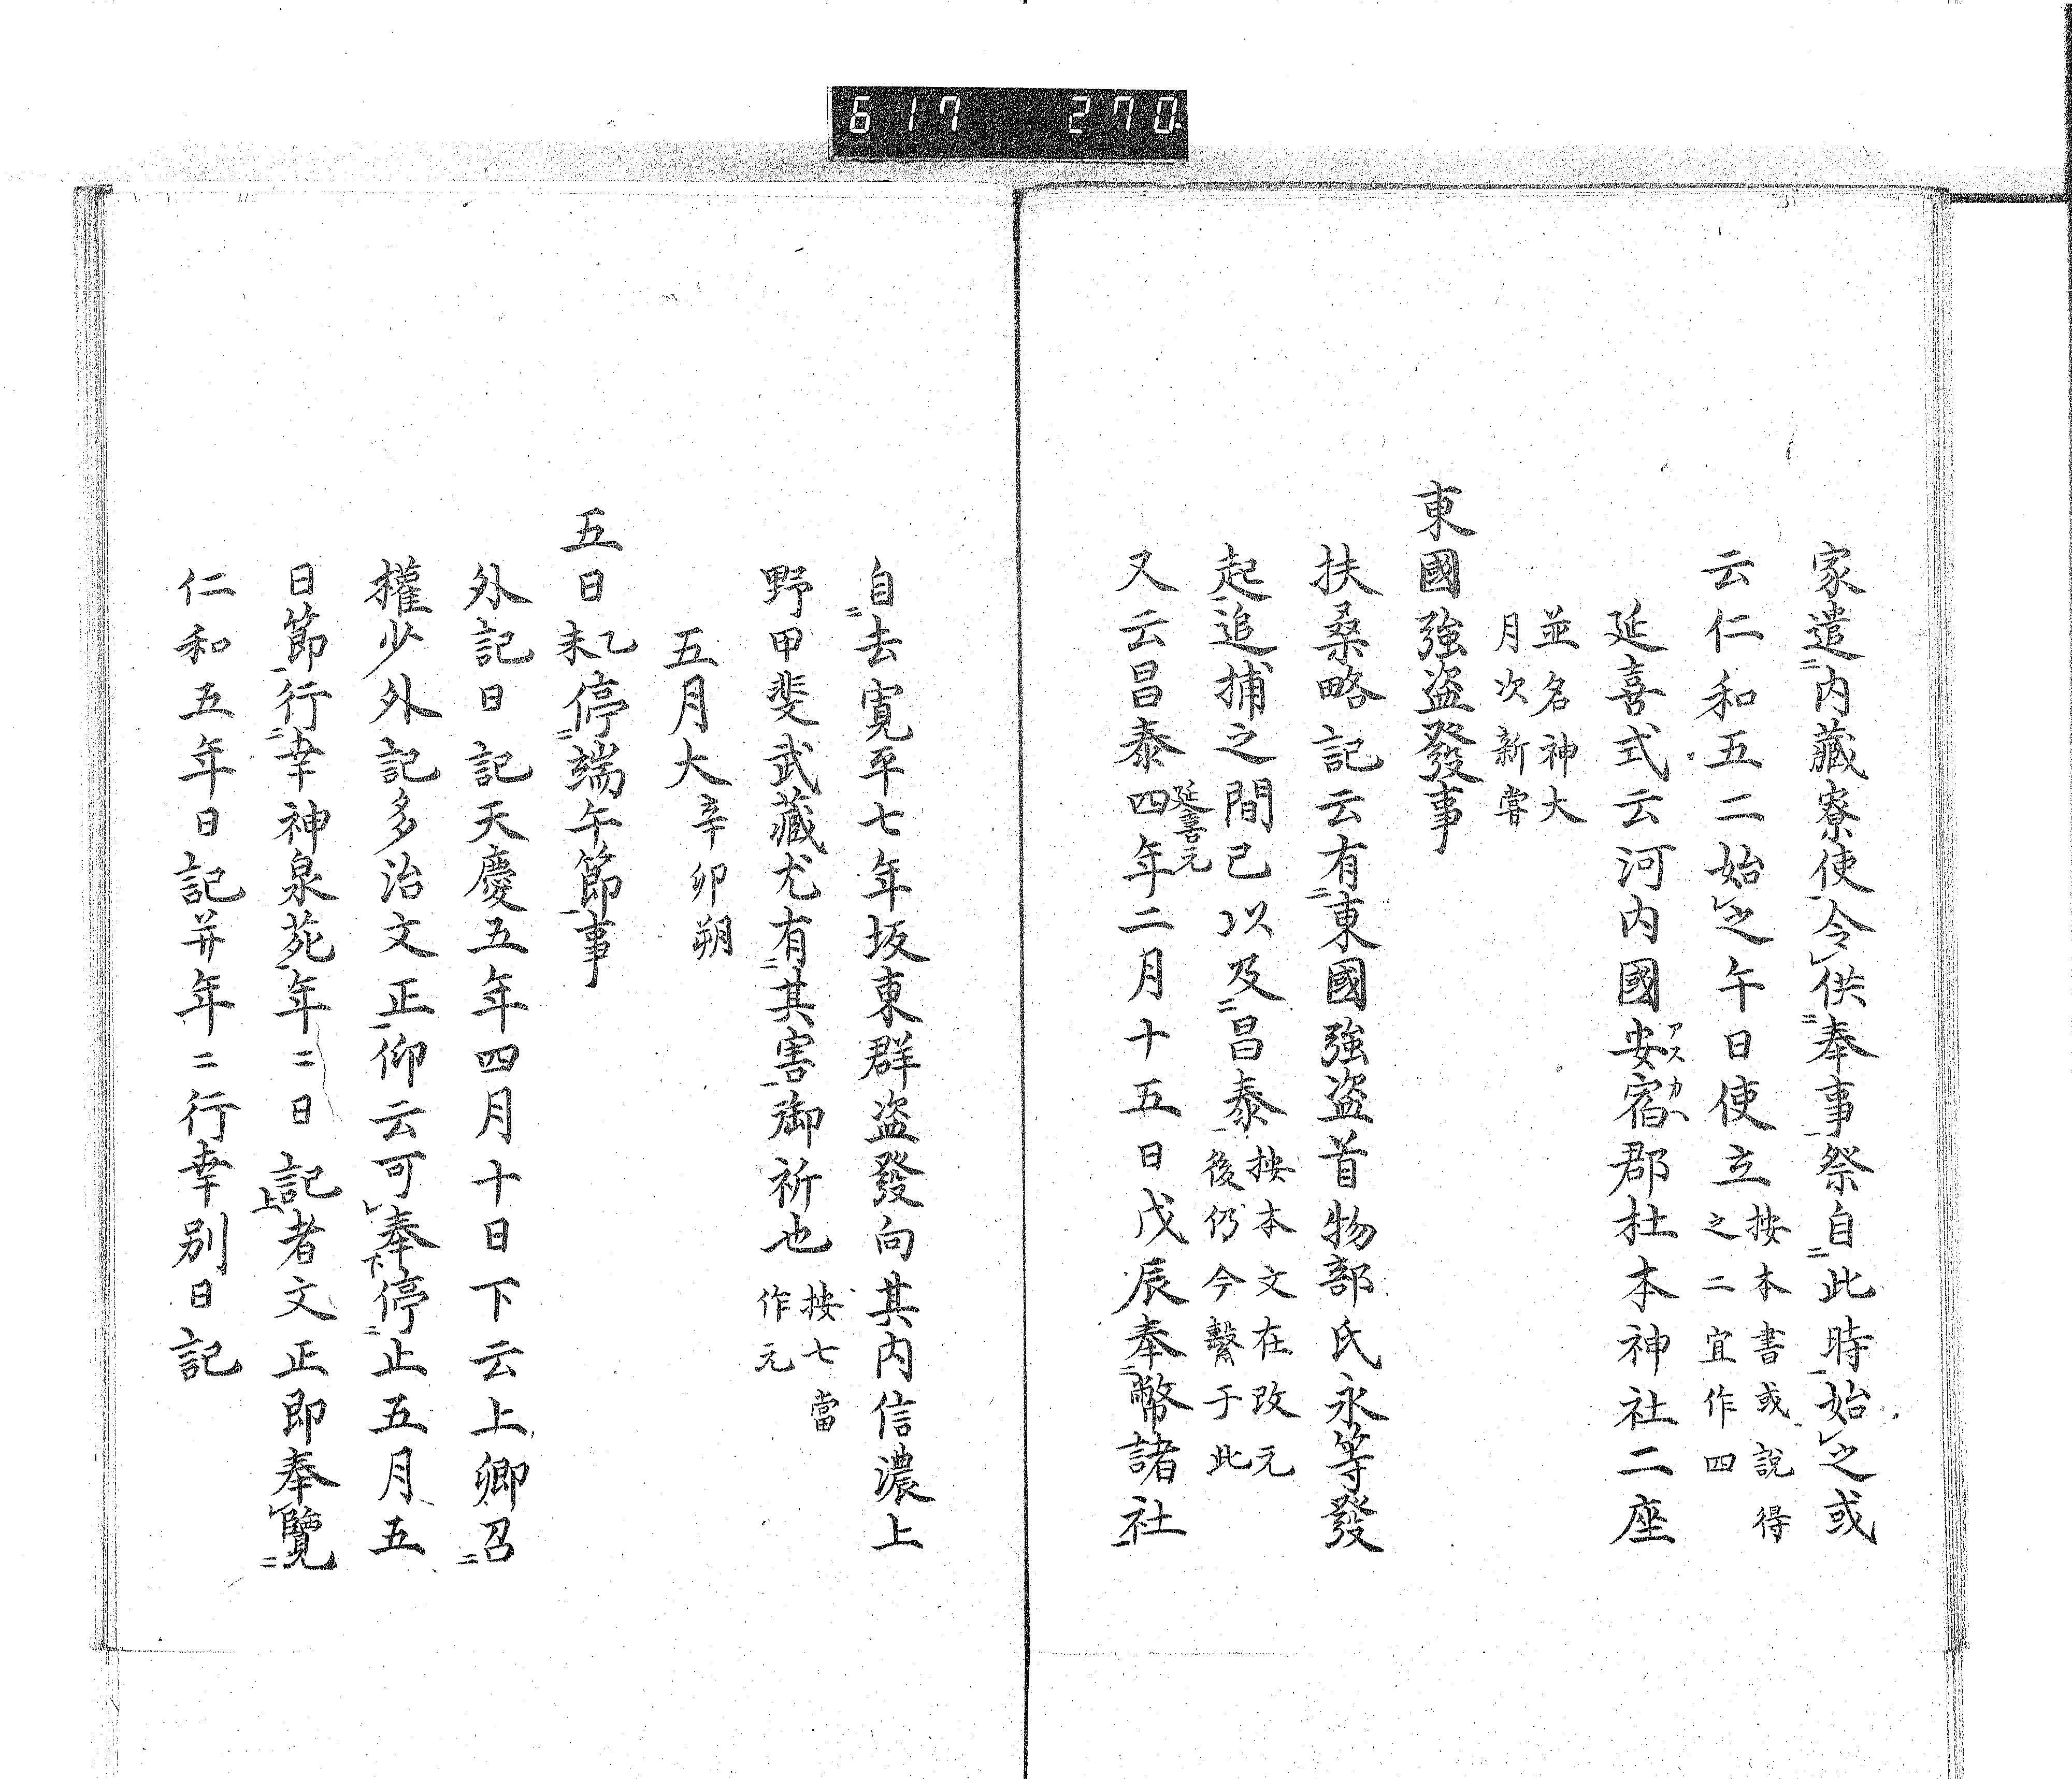 617 270.
家遣内藏寮使令供奉事祭自此時始之或
云仁和五二始之午日使立按本書或說得之二宜作四
延喜式云河内國安宿郡杜本神社二座
アスカヘ
並名神大月次新嘗
東國強盜發事
扶桑略記云有東國強盜首物部氏永等發
起追捕之間已以及昌泰按本文在改元後仍今繫于此
又云昌泰四年二月十五日戊辰奉幣諸社
延喜元
自去寛平七年坂東群盜發向其内信濃上
野甲斐武藏尤有其害御祈也按七當作元
五月大辛卯朔
五日乙未停端午節事
外記日記天慶五年四月十日下云上卿召
權少外記多治文正仰云可奉停止五月五
日節行幸神泉苑年〻日記者文正即奉覽
仁和五年日記并年〻行幸別日記